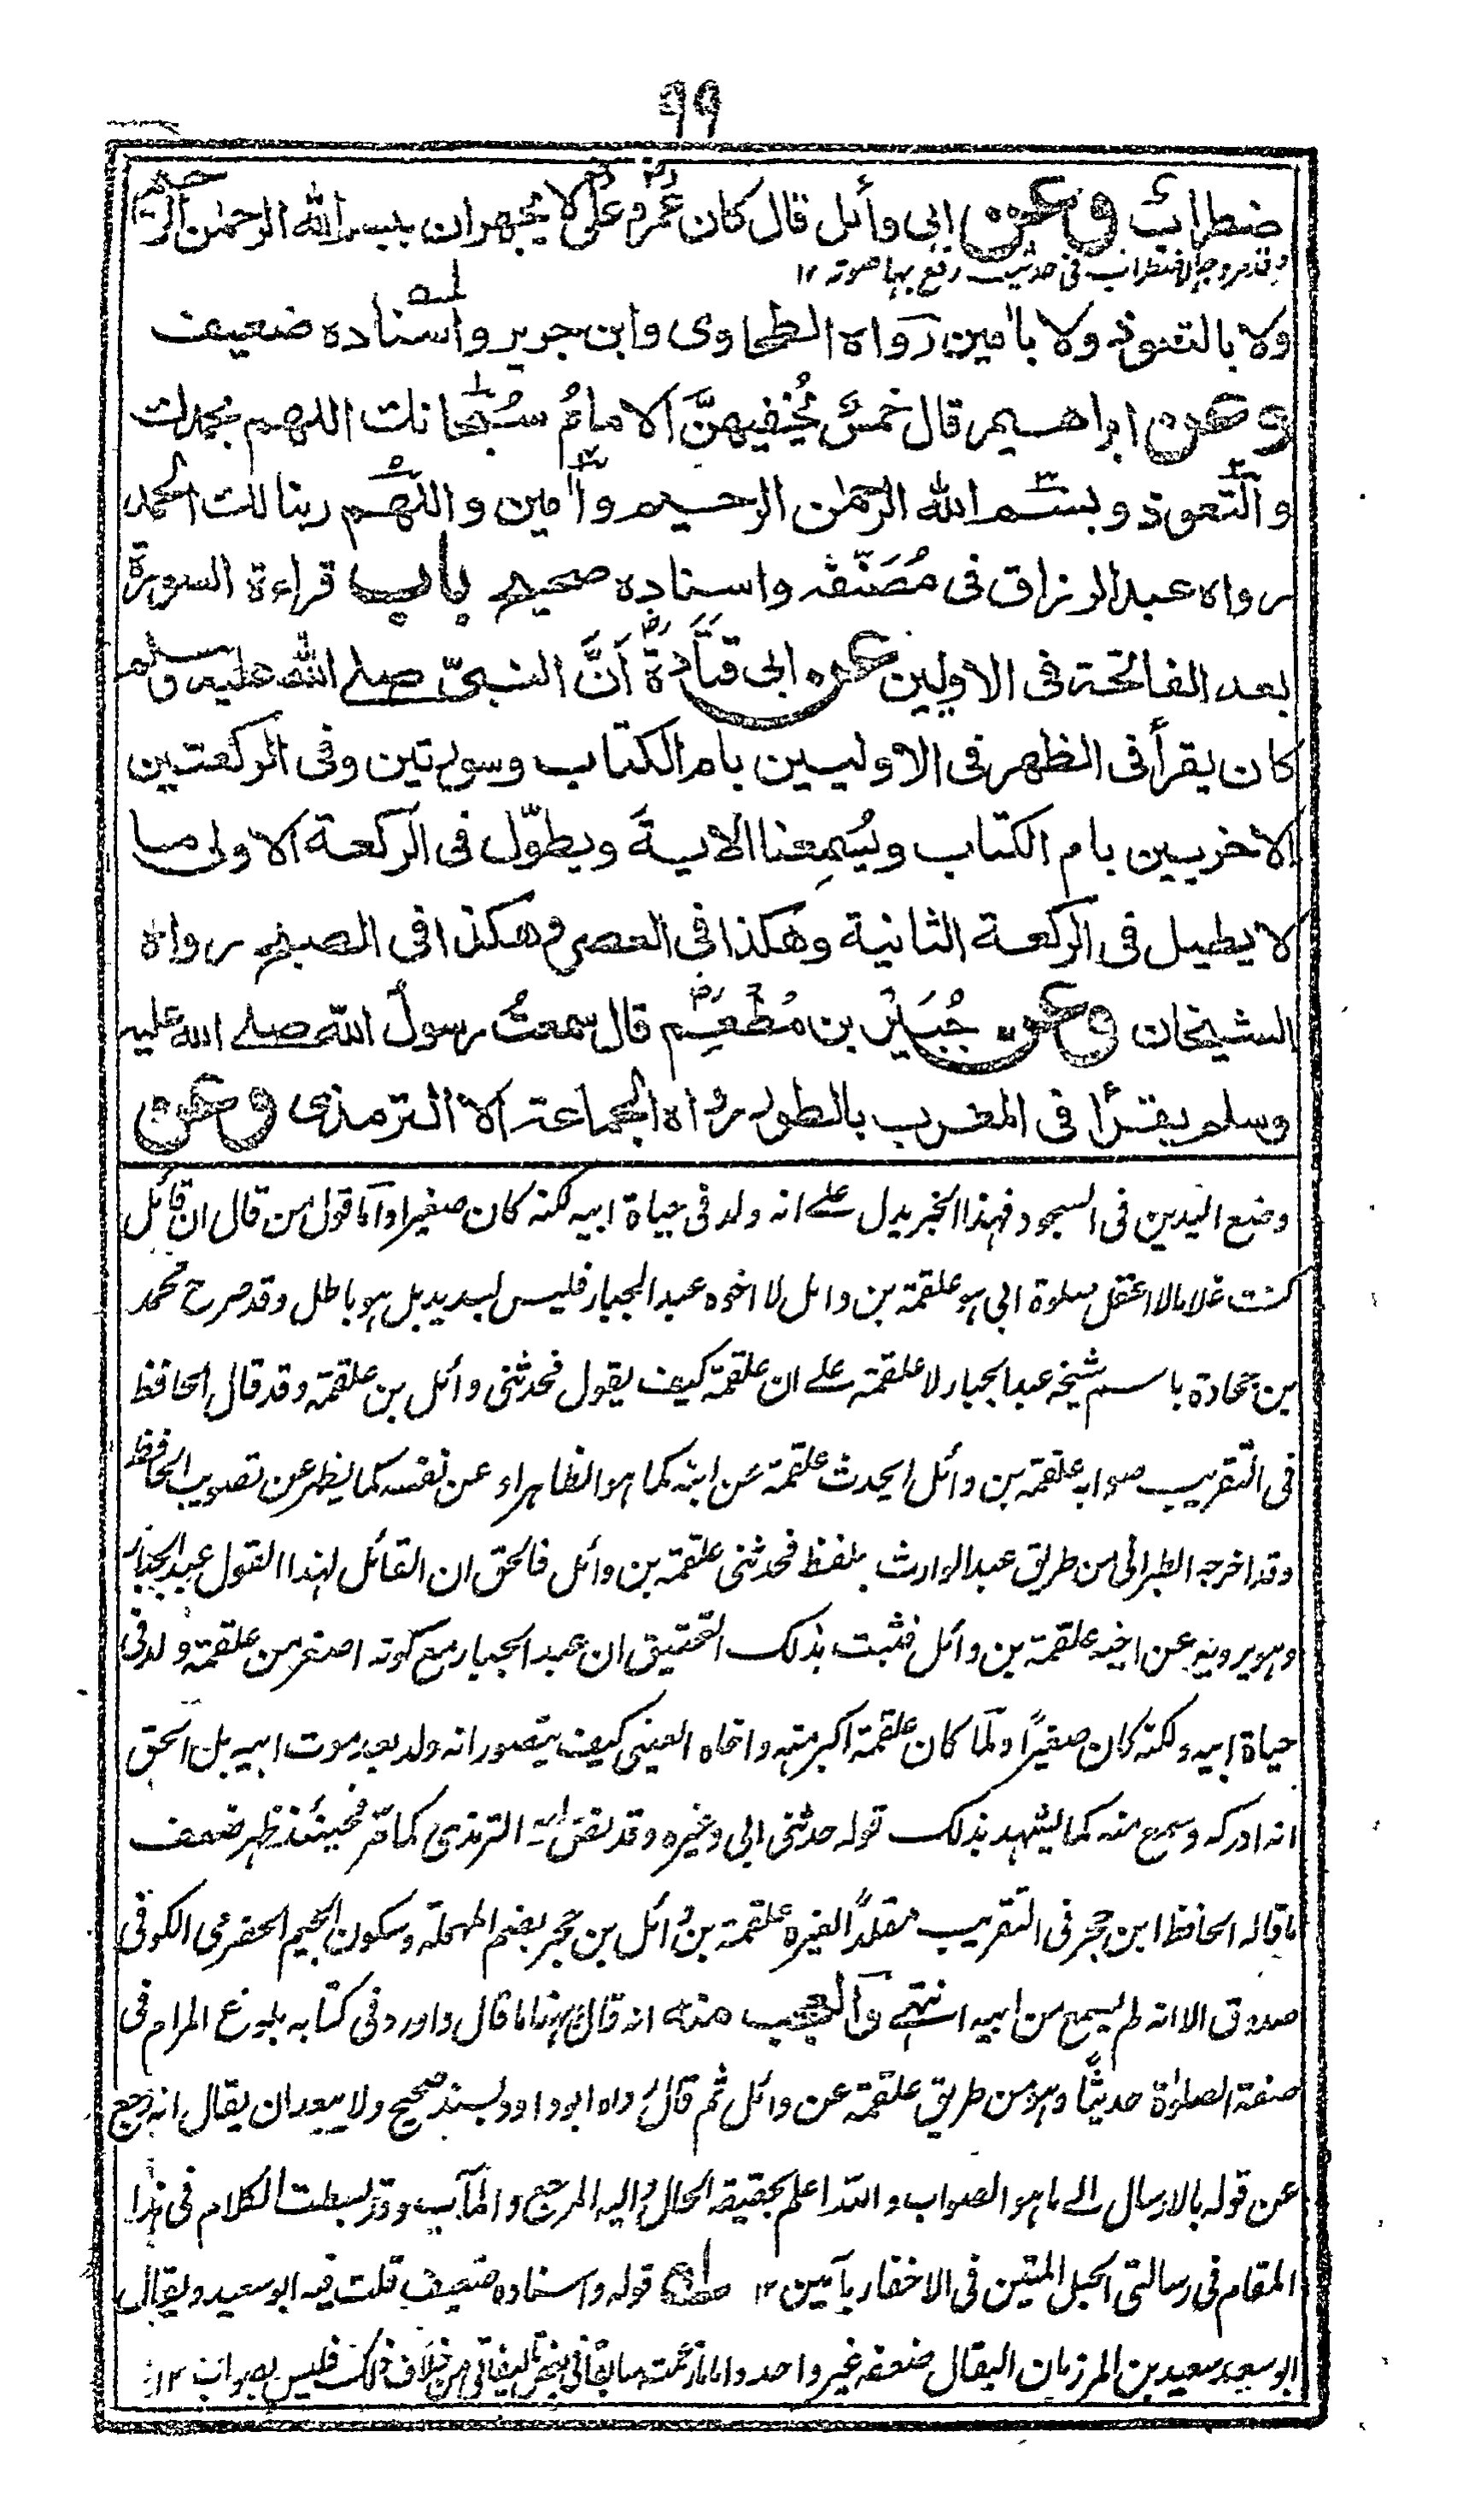 ٩٩
ضطراب وعن ابى وائل قال كان عمر رض وعلى رض لا يجهران ببسم الله الرحمٰن الرحيم
وقد مر وجه الاضطراب فى حديث رفع بها صوته ١٢
ولا بالتعوذ ولا باٰمين رواه الطحاوى وابن جرير واسناده ضعيف
وعن ابراهيم قال خمسٌ يُخفيهنَّ الامامُ سُبحانك اللهم بحمدك
والتعوذ وبسم الله الرحمٰن الرحيم واٰمين واللهم ربنا لك الحمد
رواه عبد الرزاق فى مُصَنَّفه واسناده صحيح باب قراءة السورة
بعد الفاتحة فى الاوليين عن ابى قتادة رض أنَّ النبىّ صلى الله عليه وسلم
كان يقرأ فى الظهر فى الاوليين بام الكتاب وسورتين وفى الركعتين
الاخريين بام الكتاب ويُسمِعنا الاٰيةَ ويطوّل فى الركعة الاولى ما
لا يطيل فى الركعة الثانية وهكذا فى العصر وهكذا فى الصبح رواه
الشيخان وعن جُبَيْر بن مُطْعِم رض قال سمعتُ رسولَ الله صلى الله عليه
وسلم يقرأ فى المغرب بالطور رواه الجماعة الا الترمذى وعن
وضع اليدين فى السجود فهذا الخبر يدل على انه ولد فى حياة ابيه لكنه كان صغيرا واما قول من قال ان قائل
كنت غلاما لا اعقل صلوة ابى هو علقمة بن وائل لا اخوه عبد الجبار فليس بسديد بل هو باطل وقد صرح محمد
بن جحادة باسم شيخه عبد الجبار لا علقمة على ان علقمة كيف يقول فحدثنى وائل بن علقمة وقد قال الحافظ
فى التقريب صوابه علقمة بن وائل ايحدث علقمة عن ابنه كما هو الظاهر او عن نفسه كما يظهر عن تصويب الحافظ
وقد اخرجه الطبرانى من طريق عبد الوارث بلفظ فحدثنى علقمة بن وائل فالحق ان القائل لهذا القول عبد الجبار
وهو يرويه عن اخيه علقمة بن وائل فثبت بذلك التحقيق ان عبد الجبار مع كونه اصغر من علقمة ولد فى
حياة ابيه ولكنه كان صغيرًا ولما كان علقمة اكبر منه واخاه العينى كيف يتصور انه ولد بعد موت ابيه بل الحق
انه ادركه وسمع منه كما يشهد بذلك قوله حدثنى ابى وغيره وقد نص عليه الترمذى كما مر فحينئذ ظهر ضعف
ما قاله الحافظ ابن حجر فى التقريب مقلدًا لغيره علقمة بن وائل بن حجر بضم المهملة وسكون الجيم الحضرمى الكوفى
صدوق الا انه لم يسمع من ابيه انتهى والعجب منه انه قال ههنا ما قال واورد فى كتابه بلوغ المرام فى
صفة الصلوٰة حديثًا وهو من طريق علقمة عن وائل ثم قال رواه ابو داود بسند صحيح ولا يبعد ان يقال انه رجع
عن قوله بالارسال الى ما هو الصواب والله اعلم بحقيقة الحال واليه المرجع والمآب وقد بسطت الكلام فى هذا
المقام فى رسالتى الحبل المتين فى الاخفاء بآمين ١٢ قوله واسناده ضعيف قلت فيه ابو سعيد ويقال
ابو سعد سعيد بن المرزبان البقال ضعفه غير واحد واما ما زعمت سابقا فى بعض تاليفاتى من خلاف ذلك فليس بصواب ١٢